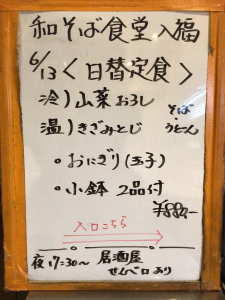 和そば食堂 入福
6/13 <日替定食>
冷)山菜おろし そば
温)きざみとじ ・うどん
・おにぎり(玉子)
・小鉢 2品付
¥880-
入口こちら
夜17:30〜 居酒屋
せんベロあり